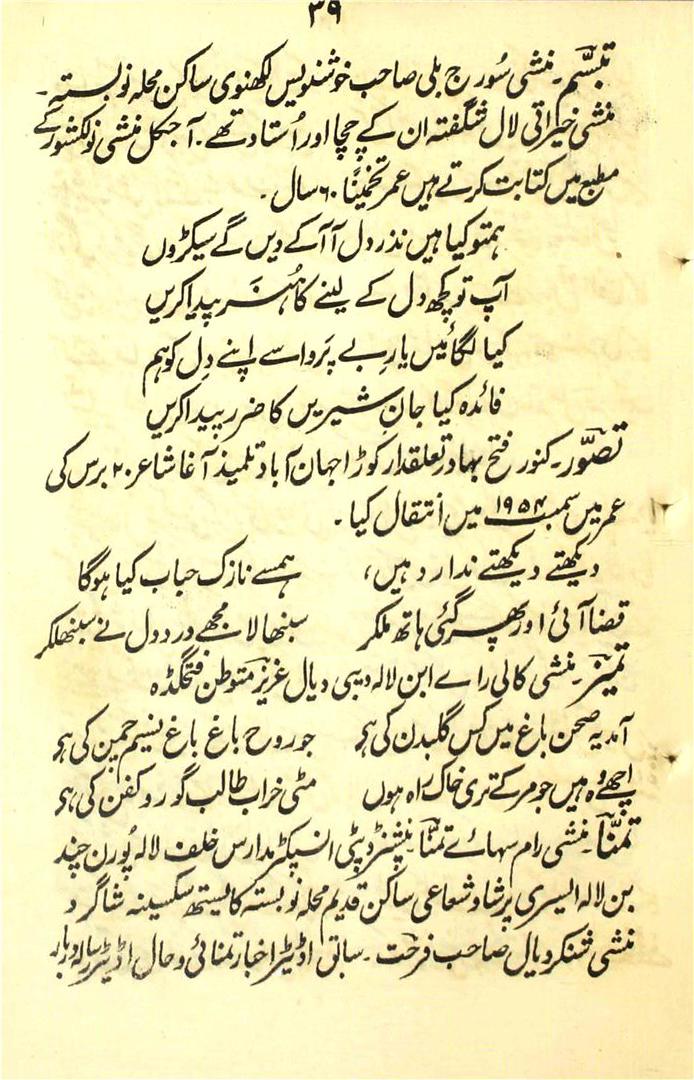 ۳۹
تبسّم۔ منشی سُورج بلی صاحب خوشنویس لکھنوی ساکن محلہ نوبستہ۔
منشی خیراتی لال شگفتہ ان کے چچا اور اُستاد تھے۔ آجکل منشی نولکشور کے
مطبع میں کتابت کرتے ہیں عمر تخمیناً ۶۰ سال۔
ہمتو کیا ہیں نذر دل آ آ کے دیں گے سیکڑوں
آپ تو کچھ دل کے لینے کا ہُنَر پیدا کریں
کیا لگائیں یارِ بے پَروا سے اپنے دِل کو ہم
فائدہ کیا جانِ شیریں کا ضرر پیدا کریں
تصوّر۔ کنور فتح بہادر تعلقدار کوڑا جہان آباد تلمیذ آغا شاعر ۲۰ برس کی
عمر میں سمبت ۱۹۵۴ میں انتقال کیا۔
دیکھتے دیکھتے ندارد ہیں، ہمسے نازک حباب کیا ہوگا
قضا آئی اور پھر گئی ہاتھ ملکر سبنھالا مجھے درد دل نے سبنھلکر
تمیز۔ منشی کالی راے ابن لالہ دیبی دیال عزیز متوطن فتحگڈہ
آمد یہ صحن باغ میں کس گلبدن کی ہی جو روح باغ باغ نسیم چمن کی ہی
اچھے وہ ہیں جو مر کے تری خاک راہ ہوں مٹی خراب طالب گور و کفن کی ہی
تمنّا۔ منشی رام سہاے تمنّا۔ پنشنر ڈپٹی انسپکٹر مدارس خلف لالہ پُورن چند
بن لالہ ایسری پرشاد شعاعی ساکن قدیم محلہ نوبستہ کایستھ سکسینہ شاگرد
منشی شنکر دیال صاحب فرحت۔ سابق اڈیٹر اخبار تمنائی و حال اڈیٹر رسالہ دربار